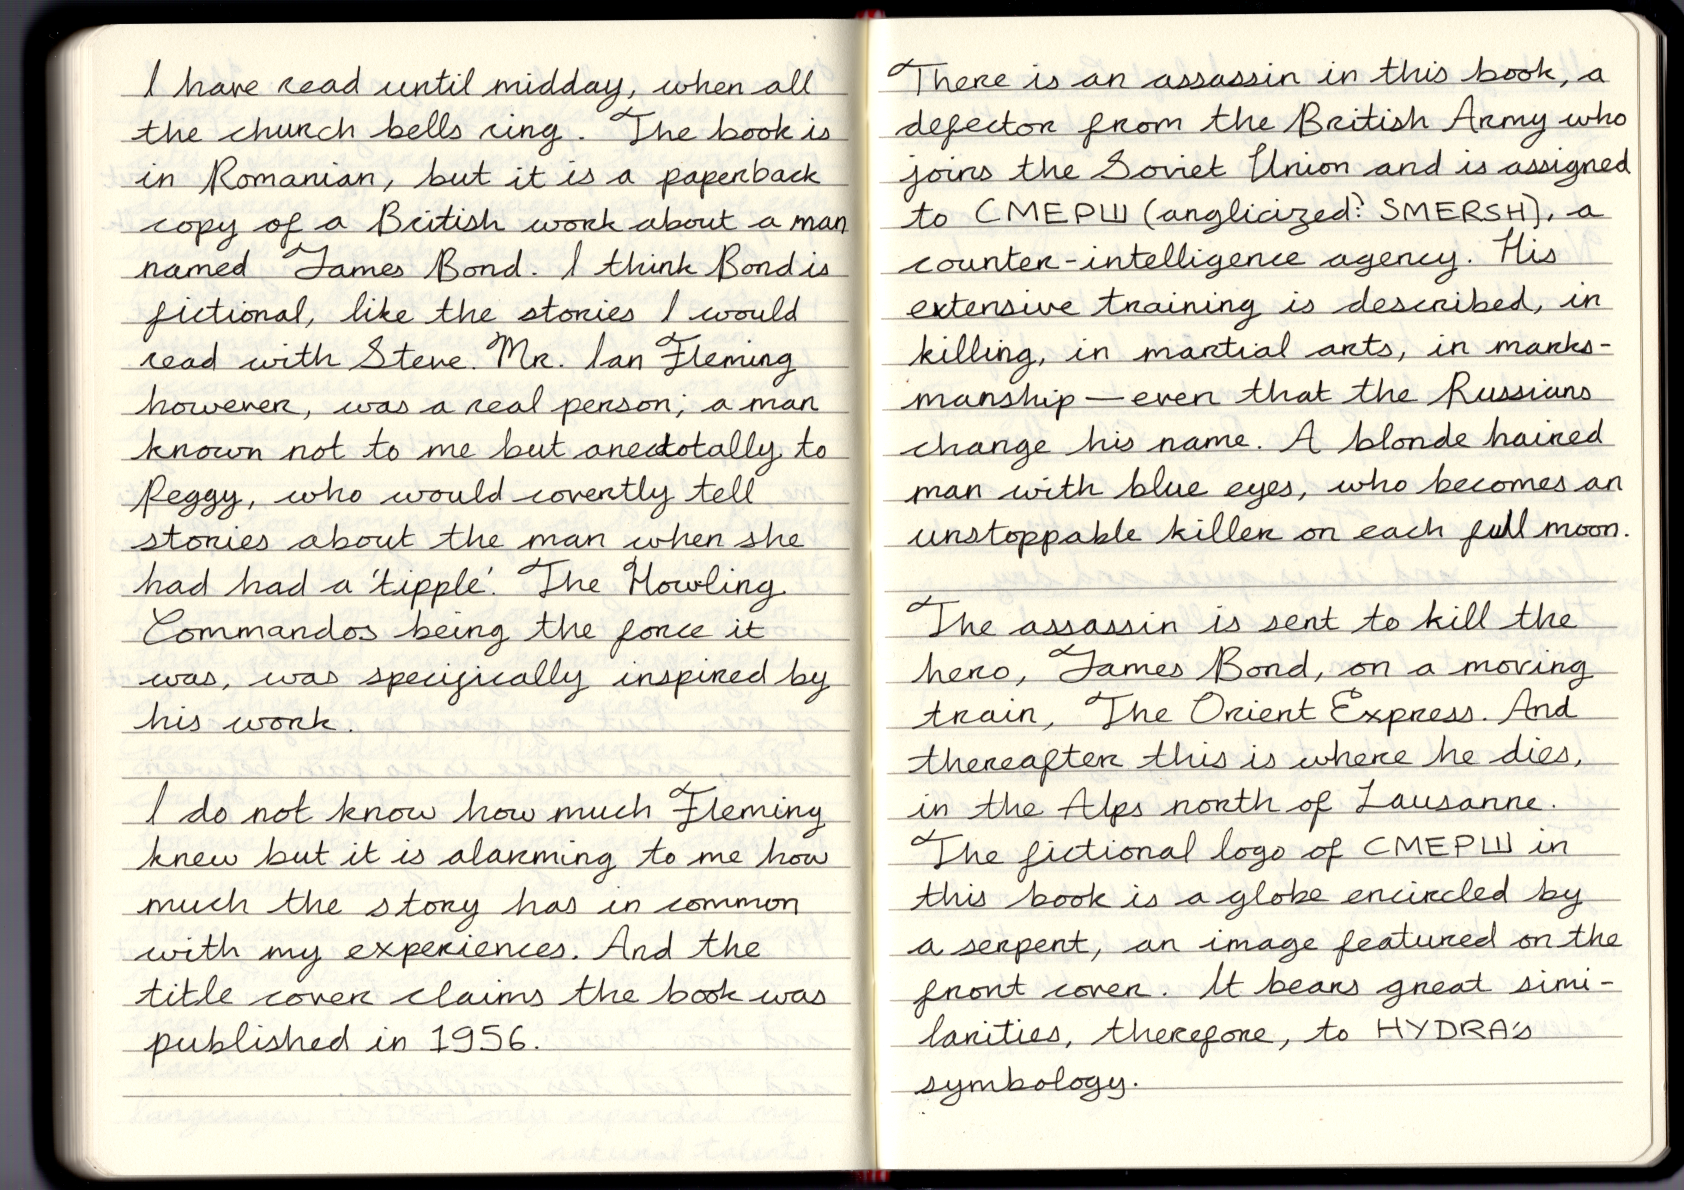 I have read until midday, when all
the church bells ring. The book is
in Romanian, but it is a paperback
copy of a British work about a man
named James Bond. I think Bond is
fictional, like the stories I would
read with Steve. Mr. Ian Fleming
however, was a real person; a man
known not to me but anecdotally to
Peggy, who would covertly tell
stories about the man when she
had had a 'tipple'. The Howling
Commandos being the force it
was, was specifically inspired by
his work.
I do not know how much Fleming
knew but it is alarming to me how
much the story has in common
with my experiences. And the
title cover claims the book was
published in 1956.
There is an assassin in this book, a
defector from the British Army who
joins the Soviet Union and is assigned
to СМЕРШ (anglicized? SMERSH), a
counter-intelligence agency. His
extensive training is described, in
killing, in martial arts, in marks-
manship — even that the Russians
change his name. A blonde haired
man with blue eyes, who becomes an
unstoppable killer on each full moon.
The assassin is sent to kill the
hero, James Bond, on a moving
train, The Orient Express. And
thereafter this is where he dies,
in the Alps north of Lausanne.
The fictional logo of СМЕРШ in
this book is a globe encircled by
a serpent, an image featured on the
front cover. It bears great simi-
larities, therefore, to HYDRA's
symbology.